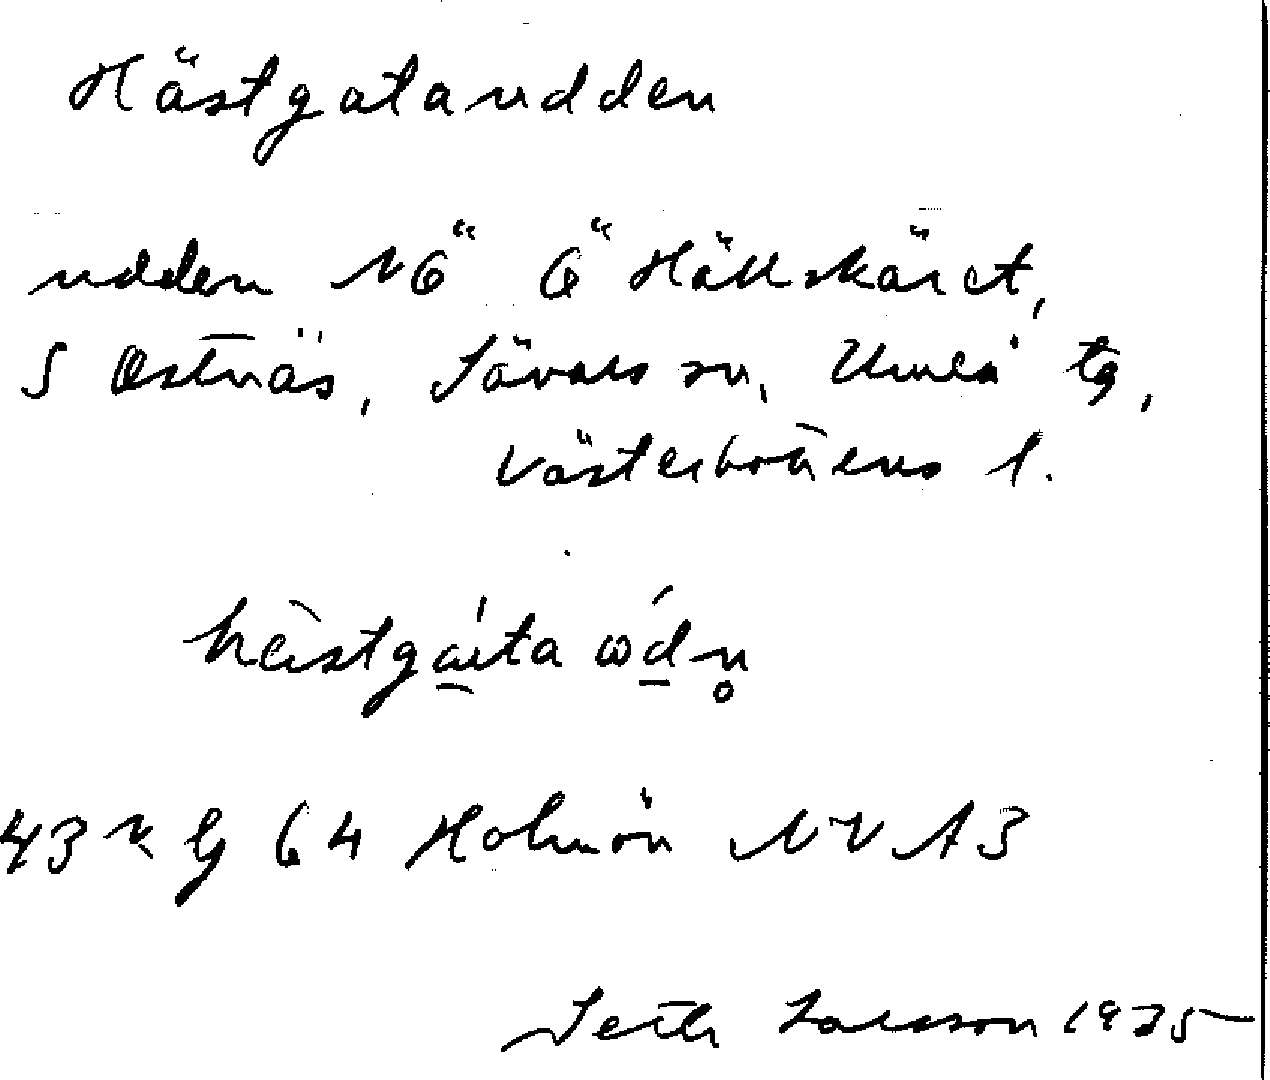 Hästgataudden
udden NÖ Ö Hällskäret,
S Ostnäs, Sävars sn, Umeå tg,
Västerbottens l.
43 64 Holmön NV A3
Seth Larsson 1935